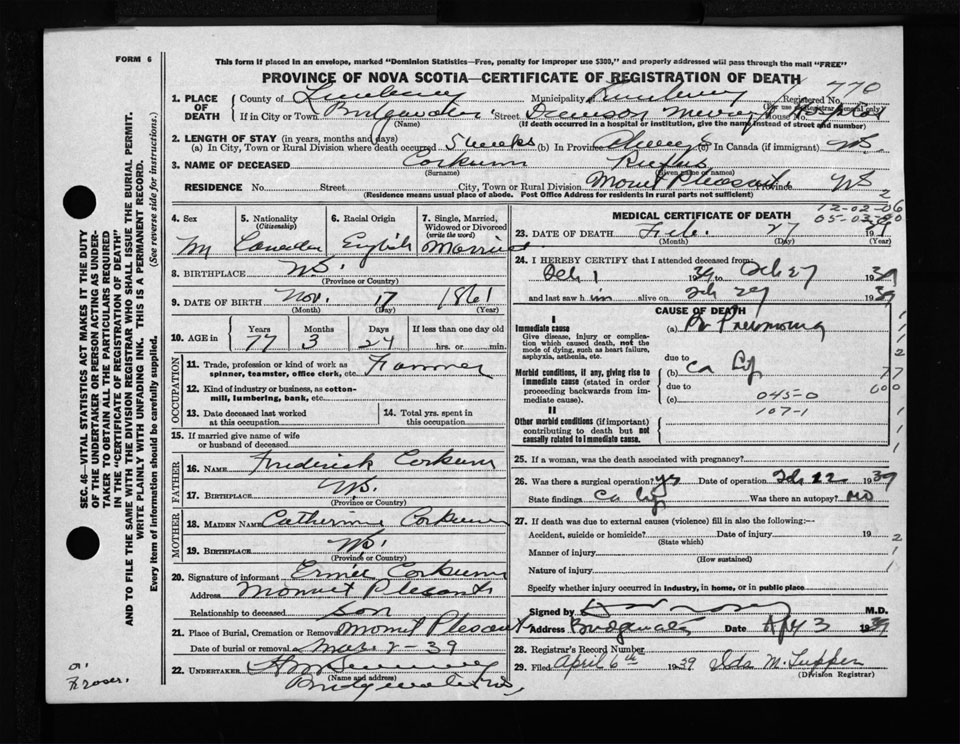 FORM 6
This form if placed in an envelope, marked "Dominion Statistics—Free, penalty for improper use $300," and properly addressed will pass through the mail "FREE"
PROVINCE OF NOVA SCOTIA—CERTIFICATE OF REGISTRATION OF DEATH
770
1. PLACE OF DEATH
County of Lunenburg Municipality Lunenburg Registered No.
(For use of Registrar General only)
If in City or Town Bridgewater Street House No.
(Name) (If death occurred in a hospital or institution, give the name instead of street and number)
2. LENGTH OF STAY (in years, months and days)
(a) In City, Town or Rural Division where death occurred 5 weeks (b) In Province Always (c) In Canada (if immigrant) NS.
3. NAME OF DECEASED Corkum Rufus
(Surname) (Given name or names)
RESIDENCE No. Street City, Town or Rural Division Mount Pleasant Province NS
(Residence means usual place of abode. Post Office Address for residents in rural parts not sufficient)
4. Sex M
5. Nationality (Citizenship) Canadian
6. Racial Origin English
7. Single, Married, Widowed or Divorced (write the word) Married
8. BIRTHPLACE N.S.
(Province or Country)
9. DATE OF BIRTH Nov. 17 1861
(Month) (Day) (Year)
10. AGE in Years Months Days If less than one day old
77 3 24 hrs. or min.
OCCUPATION
11. Trade, profession or kind of work as spinner, teamster, office clerk, etc. Farmer
12. Kind of industry or business, as cotton-mill, lumbering, bank, etc.
13. Date deceased last worked at this occupation
14. Total yrs. spent in this occupation
15. If married give name of wife or husband of deceased
FATHER
16. NAME Frederick Corkum
17. BIRTHPLACE N.S.
(Province or Country)
MOTHER
18. MAIDEN NAME Catherine Corkum
19. BIRTHPLACE N.S.
(Province or Country)
20. Signature of informant Corkum
Address Mount Plesant
Relationship to deceased son
21. Place of Burial, Cremation or Removal Mount Plesant
Date of burial or removal Mar 2 - 39
22. UNDERTAKER
(Name and address)
Bridgewater N.S.
MEDICAL CERTIFICATE OF DEATH
12-02-06
05-03-00
23. DATE OF DEATH Feb. 27 1939
(Month) (Day) (Year)
24. I HEREBY CERTIFY that I attended deceased from:
Feb 1 1939 to Feb 27 1939
and last saw him alive on Feb 27 1939
CAUSE OF DEATH
I
Immediate cause
Give disease, injury or complication which caused death, not the mode of dying, such as heart failure, asphyxia, asthenia, etc.
(a) Br Pneumonia
due to
Morbid conditions, if any, giving rise to immediate cause (stated in order proceeding backwards from immediate cause).
(b) Ca Lip
due to
(c) 045-0
107-1
II
Other morbid conditions (if important) contributing to death but not causally related to immediate cause.
25. If a woman, was the death associated with pregnancy?
26. Was there a surgical operation? yes Date of operation Feb 22 1939
State findings Ca Lip Was there an autopsy? no
27. If death was due to external causes (violence) fill in also the following:—
Accident, suicide or homicide? Date of injury 19
(State which)
Manner of injury
(How sustained)
Nature of injury
Specify whether injury occurred in industry, in home, or in public place
Signed by M.D.
Address Bridgewater Date Apr 3 1939
28. Registrar's Record Number
29. Filed April 6th 1939 Ida M. Tupper
(Division Registrar)
SEC. 46—VITAL STATISTICS ACT MAKES IT THE DUTY
OF THE UNDERTAKER OR PERSON ACTING AS UNDER-
TAKER TO OBTAIN ALL THE PARTICULARS REQUIRED
IN THE "CERTIFICATE OF REGISTRATION OF DEATH"
AND TO FILE THE SAME WITH THE DIVISION REGISTRAR WHO SHALL ISSUE THE BURIAL PERMIT.
WRITE PLAINLY WITH UNFADING INK. THIS IS A PERMANENT RECORD.
Every item of information should be carefully supplied. (See reverse side for instructions.)